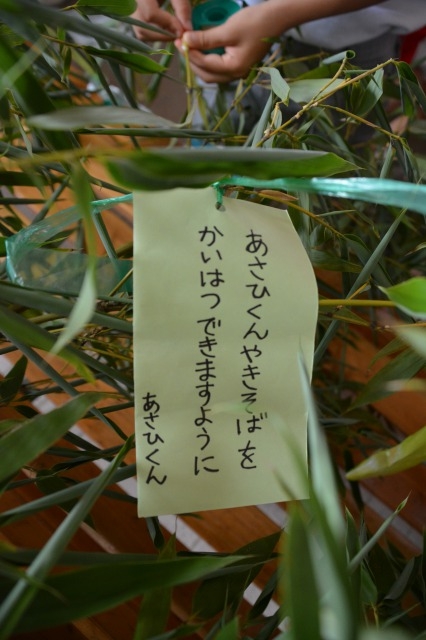 あさひくんやきそばを
かいはつできますように
あさひくん